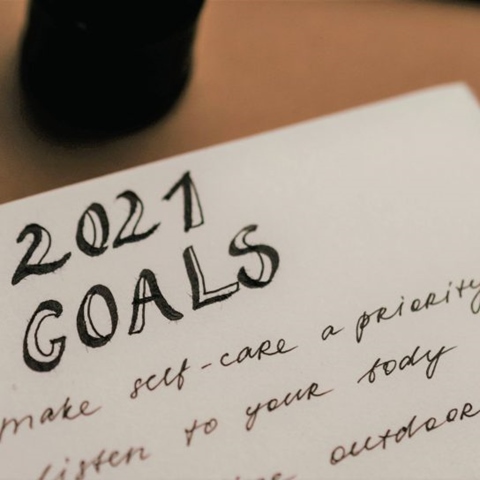 2021
GOALS
make self-care a priority
listen to your body
outdoor